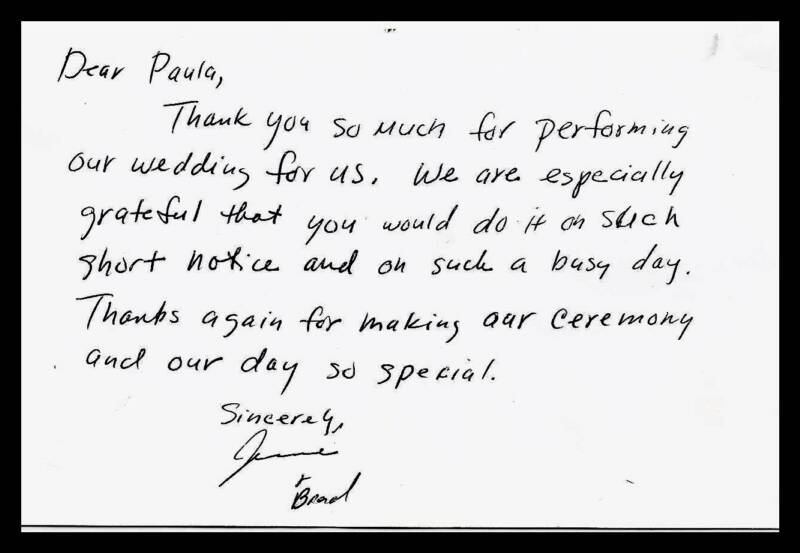 Dear Paula,
Thank you so much for performing
our wedding for us. We are especially
grateful that you would do it on such
short notice and on such a busy day.
Thanks again for making our ceremony
and our day so special.
Sincerely,
& Brad